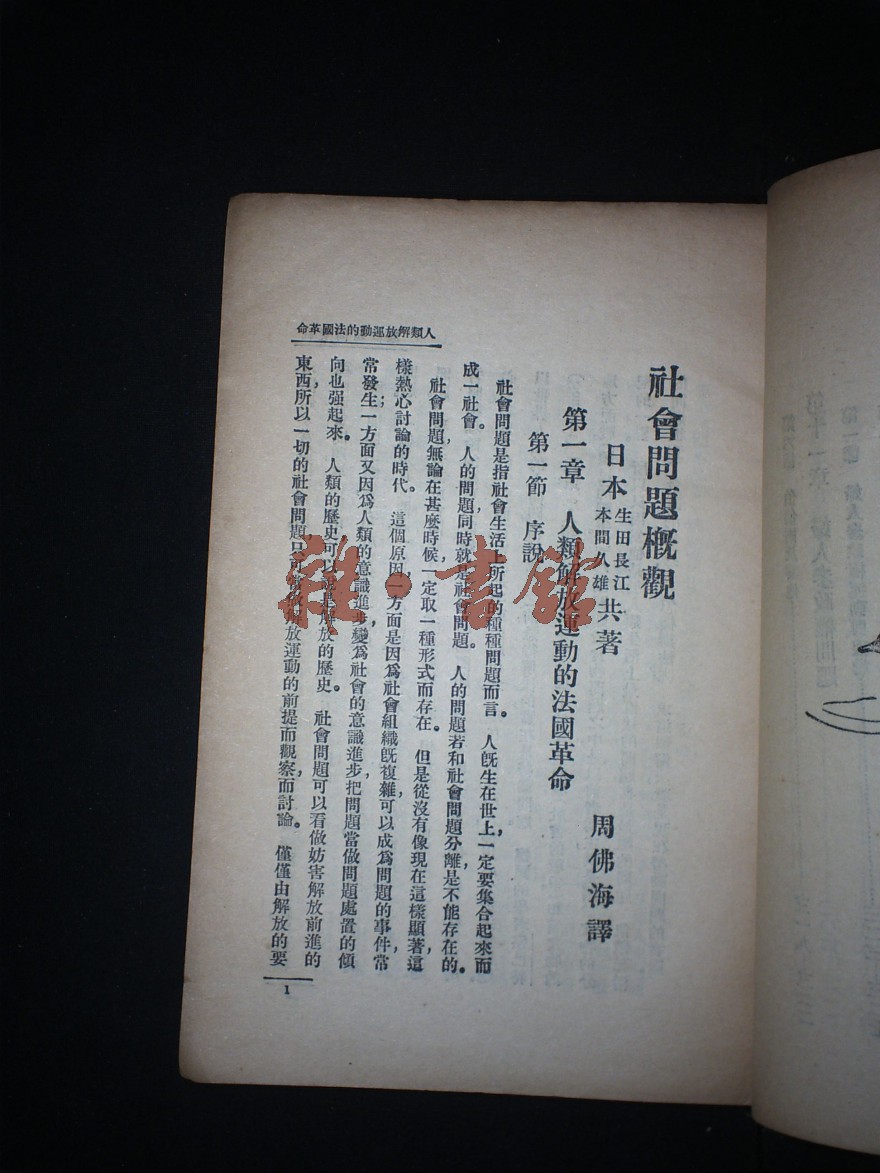 社會問題概觀
日本 生田長江 本間久雄 共著
周佛海譯
第一章 人類解放運動的法國革命
第一節 序說
社會問題是指社會生活上所起的種種問題而言。人旣生在世上,一定要集合起來而
成一社會。人的問題同時就是社會問題。人的問題若和社會問題分離,是不能存在的。
社會問題,無論在甚麼時候,一定取一種形式而存在。但是從沒有像現在這樣顯著,這
樣熱心討論的時代。這個原因,一方面是因爲社會組織旣複雜,可以成爲問題的事件,常
常發生;一方面又因爲人類的意識進步,變爲社會的意識進步,把問題當做問題處置的傾
向也强起來。人類的歷史,可以說是解放的歷史。社會問題可以看做妨害解放前進的
東西,所以一切的社會問題,只可當做解放運動的前提而觀察而討論。僅僅由解放的要
人類解放運動的法國革命
1
雜·書館